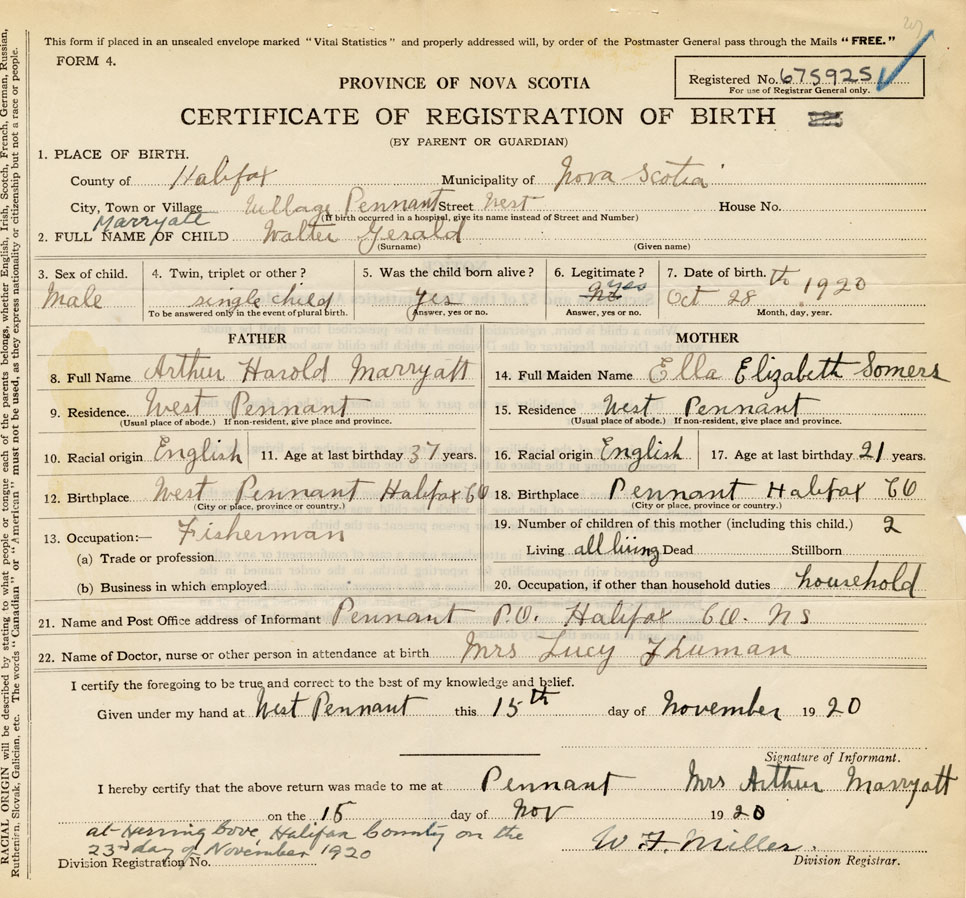 This form if placed in an unsealed envelope marked "Vital Statistics" and properly addressed will, by order of the Postmaster General pass through the Mails "FREE."
FORM 4.
Registered No. 675925
For use of Registrar General only.
PROVINCE OF NOVA SCOTIA
CERTIFICATE OF REGISTRATION OF BIRTH
(BY PARENT OR GUARDIAN)
1. PLACE OF BIRTH.
County of Halifax Municipality of Nova Scotia
City, Town or Village Village Pennant Street West House No.
(If birth occurred in a hospital, give its name instead of Street and Number)
Marryatt
2. FULL NAME OF CHILD Walter Gerald
(Surname) (Given name)
3. Sex of child. 4. Twin, triplet or other? 5. Was the child born alive? 6. Legitimate? 7. Date of birth.
Male single child Yes yes Oct 28th 1920
To be answered only in the event of plural birth. Answer, yes or no. Answer, yes or no. Month, day, year.
FATHER MOTHER
8. Full Name Arthur Harold Marryatt 14. Full Maiden Name Ella Elizabeth Somers
9. Residence. West Pennant 15. Residence West Pennant
(Usual place of abode.) If non-resident, give place and province. (Usual place of abode.) If non-resident, give place and province.
10. Racial origin English 11. Age at last birthday 37 years. 16. Racial origin English 17. Age at last birthday 21 years.
12. Birthplace West Pennant Halifax Co 18. Birthplace Pennant Halifax Co
(City or place, province or country.) (City or place, province or country.)
13. Occupation:— Fisherman 19. Number of children of this mother (including this child.) 2
(a) Trade or profession Living all living Dead Stillborn
(b) Business in which employed 20. Occupation, if other than household duties household
21. Name and Post Office address of Informant Pennant P.O. Halifax Co. NS
22. Name of Doctor, nurse or other person in attendance at birth Mrs Lucy
I certify the foregoing to be true and correct to the best of my knowledge and belief.
Given under my hand at West Pennant this 15th day of November 1920
Signature of Informant.
I hereby certify that the above return was made to me at Pennant Mrs Arthur Marryatt
on the 15 day of Nov 1920
at Herring Cove, Halifax County on the
23rd day of November 1920 W F. Miller.
Division Registration No. Division Registrar.
RACIAL ORIGIN will be described by stating to what people or tongue each of the parents belongs, whether English, Irish, Scotch, French, German, Russian,
Ruthenirn, Slovak, Galician, etc. The words "Canadian" or "American" must not be used, as they express nationality or citizenship but not a race or people.